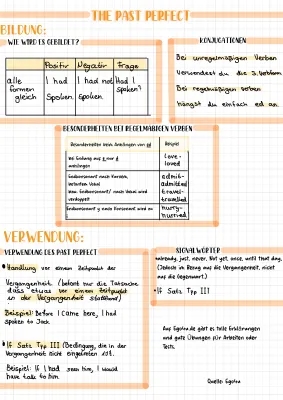 THE PAST PERFECT
BILDUNG:
WIE WIRD ES GEBILDET?
Positiv Negativ Frage
alle formen gleich
I had spoken.
I had not spoken.
Had I spoken?
KONJUGATIONEN
Bei unregelmäßigen Verben
verwendest du die 3. Verbform.
Bei regelmäßigen Verben
hängst du einfach ed an.
BESONDERHEITEN BEI REGELMÄßIGEN VERBEN
Besonderheiten beim Anhängen von ed Beispiel
Bei Endung aus e nur d anhängen
love-
loved
Endkonsonant nach kurzem, betontem Vokal
oder Endkonsonant l nach Vokal wird verdoppelt
admit-
admitted
travel-
travelled
Endkonsonant y nach Konsonant wird zu i
hurry-
hurried
VERWENDUNG:
VERWENDUNG DES PAST PERFECT
Handlung vor einem Zeitpunkt der
Vergangenheit. (betont nur die Tatsache
dass etwas vor einem Zeitpunkt
in der Vergangenheit stattfand)
Beispiel: Before I came here, I had
spoken to Jack.
If Satz Typ III (Bedingung, die in der
Vergangenheit nicht eingetreten ist.
Beispiel: If I had seen him, I would
have talk to him.
SIGNALWÖRTER
already, just, never, not yet, once, until that day,
(Jedoch in Bezug aus die Vergangenheit, nicht
aus die Gegenwart.)
If Satz Typ III
Aus Egofra.de gibt es tolle Erklärungen
und gute Übungen für Arbeiten oder
Tests.
Quelle: